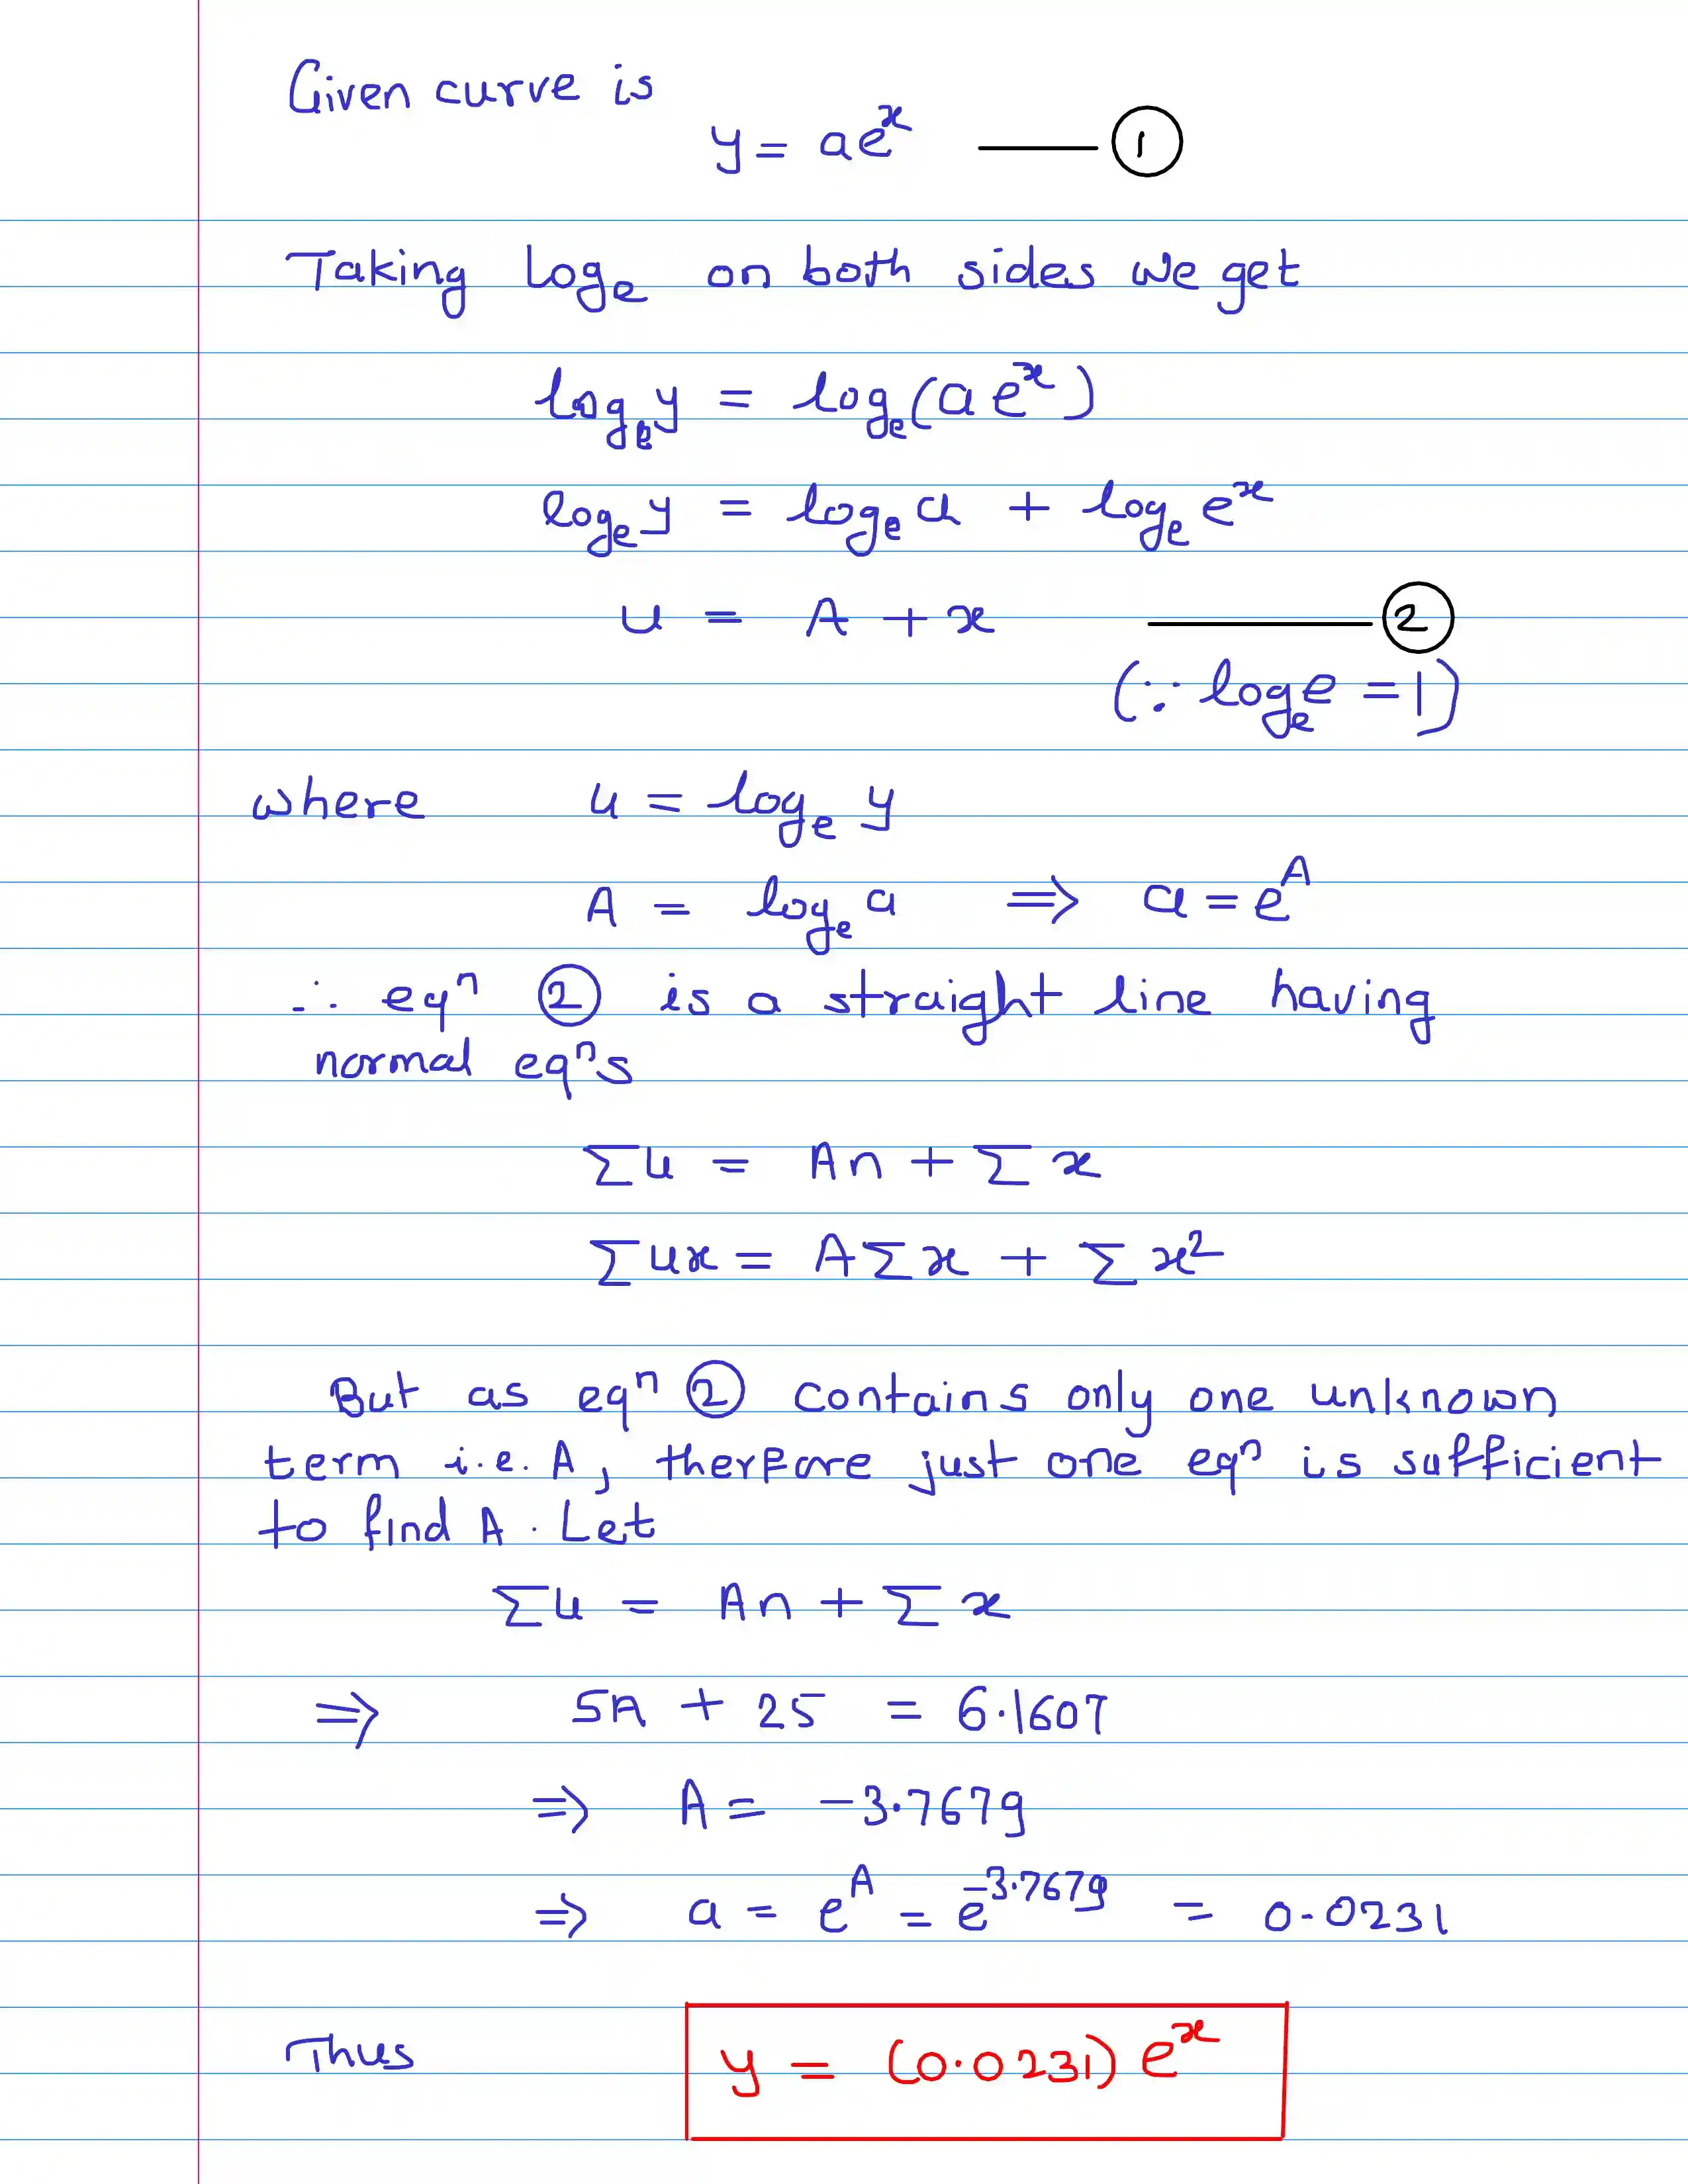 Given curve is
y = aeˣ —— ①
Taking logₑ on both sides we get
logₑy = logₑ(aeˣ)
logₑy = logₑa + logₑeˣ
u = A + x —— ②
(∵ logₑe = 1)
where u = logₑ y
A = logₑ a ⇒ a = e^A
∴ eqⁿ ② is a straight line having
normal eqⁿs
∑u = An + ∑x
∑ux = A∑x + ∑x²
But as eqⁿ ② contains only one unknown
term i.e. A, therfore just one eqⁿ is sufficient
to find A. Let
∑u = An + ∑x
⇒ 5A + 25 = 6.1607
⇒ A = -3.7679
⇒ a = e^A = e^-3.7679 = 0.0231
Thus y = (0.0231) eˣ